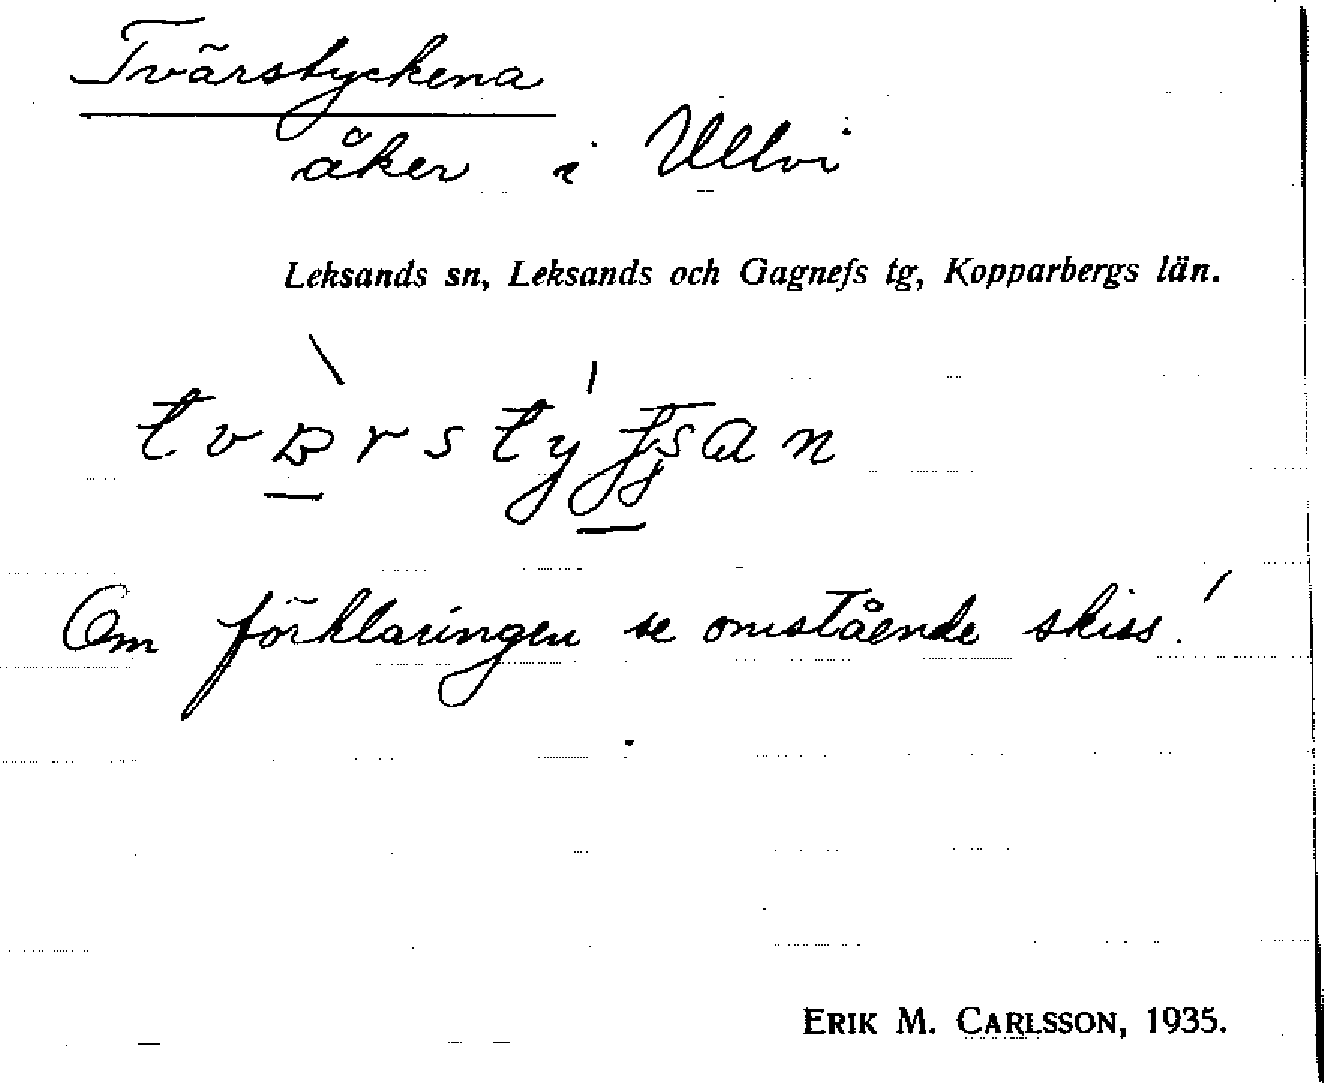 Tvärstyckena
åker i Ullvi
Leksands sn, Leksands och Gagnefs tg, Kopparbergs län.
Om förklaringen se omstående skiss!
ERIK M. CARLSSON, 1935.